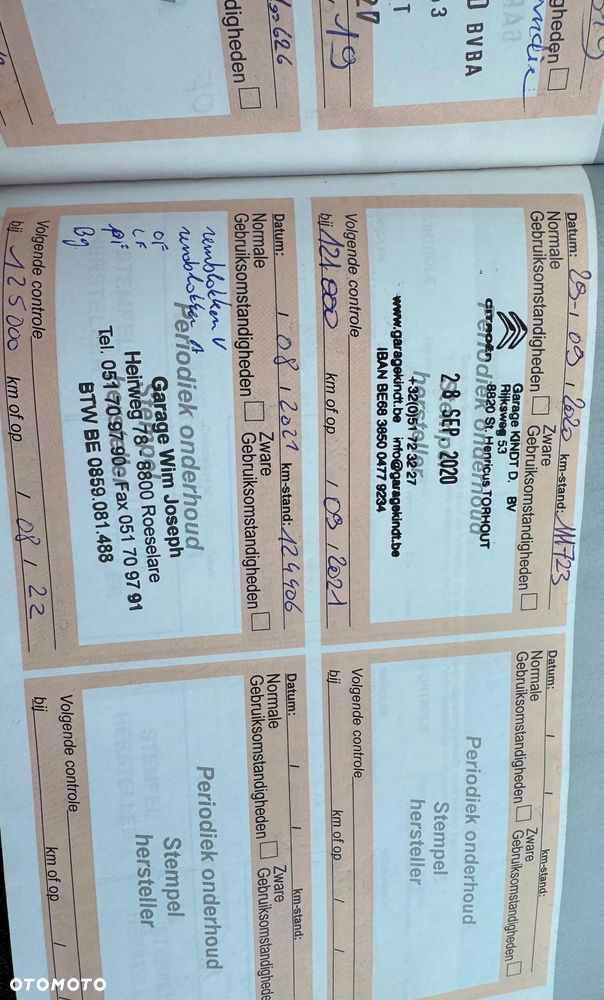 gheden
3
D BVBA
T
19
digheden
Datum: 29 / 09 / 2020 km-stand: 111723
Normale Zware
Gebruiksomstandigheden Gebruiksomstandigheden
Periodiek onderhoud
hersteller
Garage KINDT D. BV
Rijksweg 53
citroën 8820 St. Henricus TORHOUT
28 SEP. 2020
+32(0)51 72 32 27
www.garagekindt.be info@garagekindt.be
IBAN BE68 3850 0477 9234
Volgende controle
bij 121.000 km of op / 09 / 2021
Datum: / 08 / 2021 km-stand: 124906
Normale Zware
Gebruiksomstandigheden Gebruiksomstandigheden
remblokken V
remblokken A
OF
LF
PF
Bg
Periodiek onderhoud
Stempel
Garage Wim Joseph
Heirweg 78 - 8800 Roeselare
Tel. 051 70 97 90 - Fax 051 70 97 91
BTW BE 0859.081.488
Volgende controle
bij 125000 km of op / 08 / 22
Datum: / / km-stand:
Normale Zware
Gebruiksomstandigheden Gebruiksomstandigheden
Periodiek onderhoud
Stempel
hersteller
Volgende controle
bij km of op / /
Datum: / / km-stand:
Normale Zware
Gebruiksomstandigheden Gebruiksomstandighede
Periodiek onderhoud
Stempel
hersteller
Volgende controle
bij km of op /
OTOMOTO